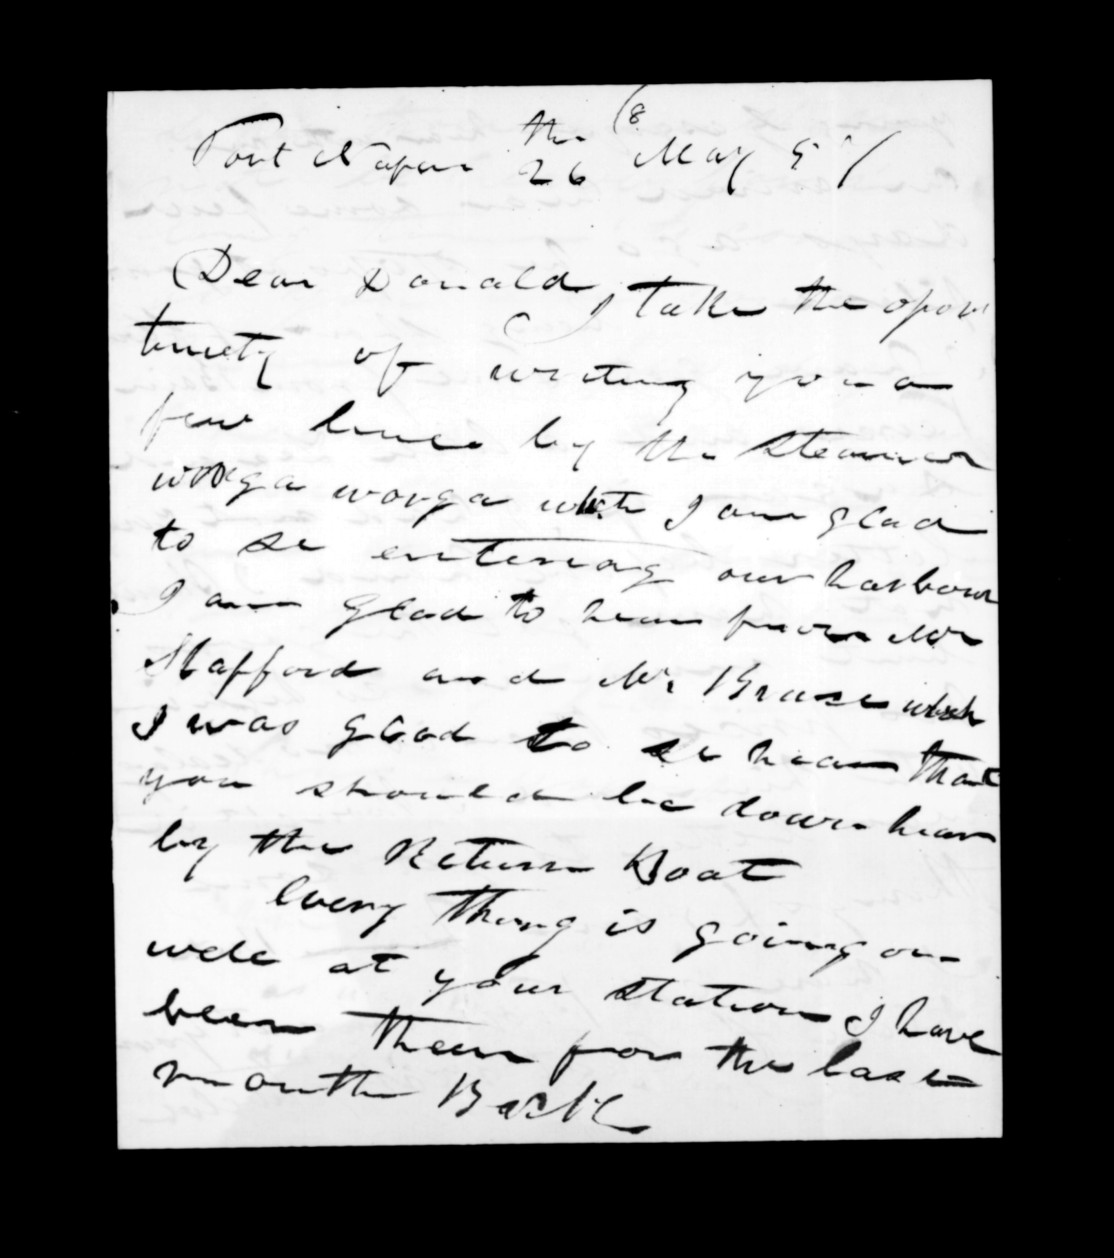 Port Napier the 26 May 57 (8
Dear Donald I take the opor
tunety of writing you a
few lines by the steamer
wonga wonga which I am glad
to se entering our harbour
I am glad to hear from Mr
Stafford and Mr Bruse which
I was glad to se hear that
you should be down hear
by the Return Boat
Every thing is going on
well at your station I have
been there for the last
month Back